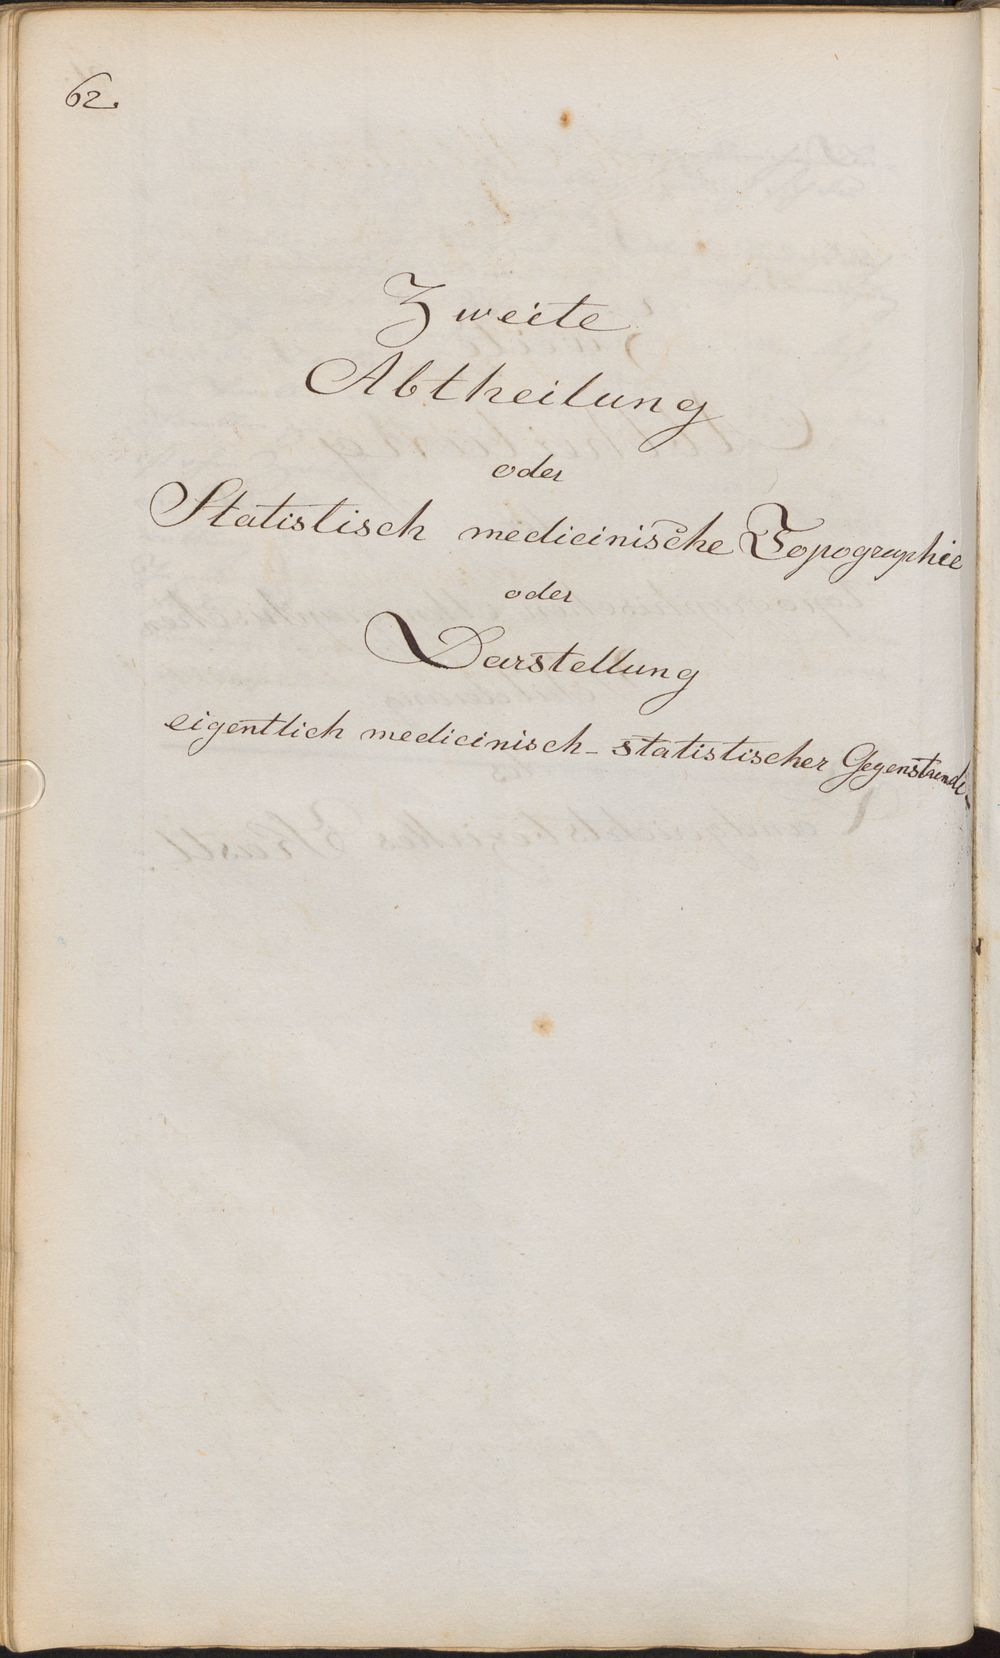 62.
Zweite
Abtheilung
oder
Statistisch medicinische Topographie
oder
Darstellung
eigentlich medicinisch-statistischer Gegenstande